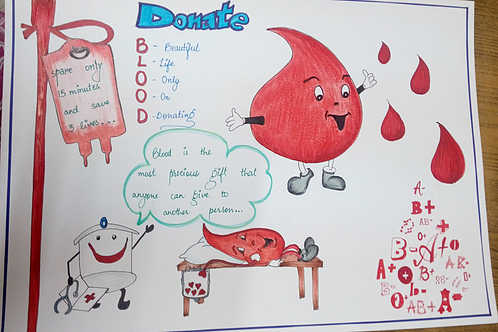 Donate
B - Beautiful
L - Life
O - Only
O - On
D - Donating
spare only
15 minutes
and save
3 lives...
Blood is the
most precious gift that
anyone can give to
another person...
A-
B+
AB-
O+
B-
A+
O
A+
O
B+
A-
B-
O
b-
AB+
A-